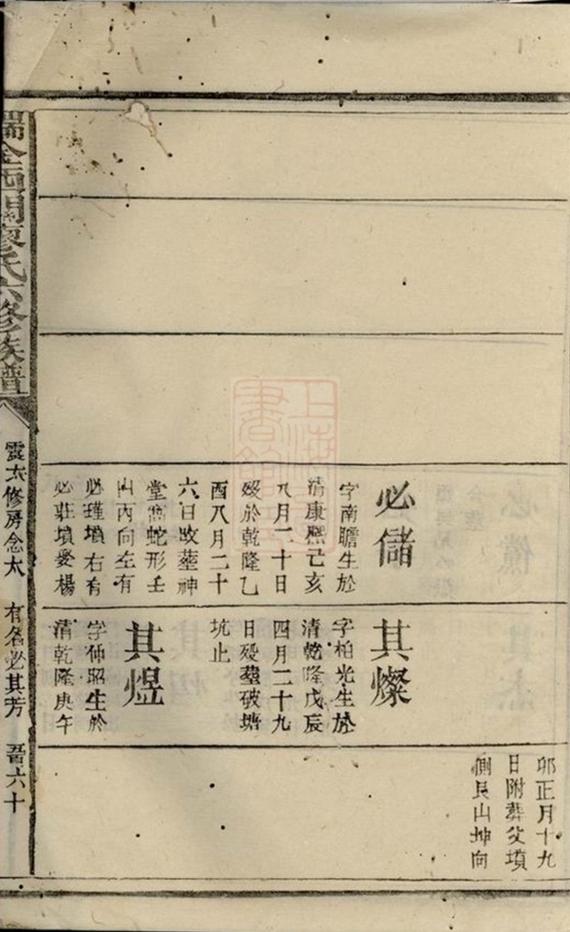 必儲
字南瞻生於
清康熙己亥
八月二十日
歿於乾隆乙
酉八月二十
六日改塟神
堂窩蛇形壬
山丙向左有
必瑾墳右有
必莊墳愛楊
其燦
字柏光生於
清乾隆戊辰
四月二十九
日歿塟破塘
坑止
其煜
字仲昭生於
清乾隆庚午
卯正月十九
日附葬父墳
側艮山坤向
瑞金西關廖氏六修族譜
雲太修房念太 有名必其芳 六十
上海圖書館